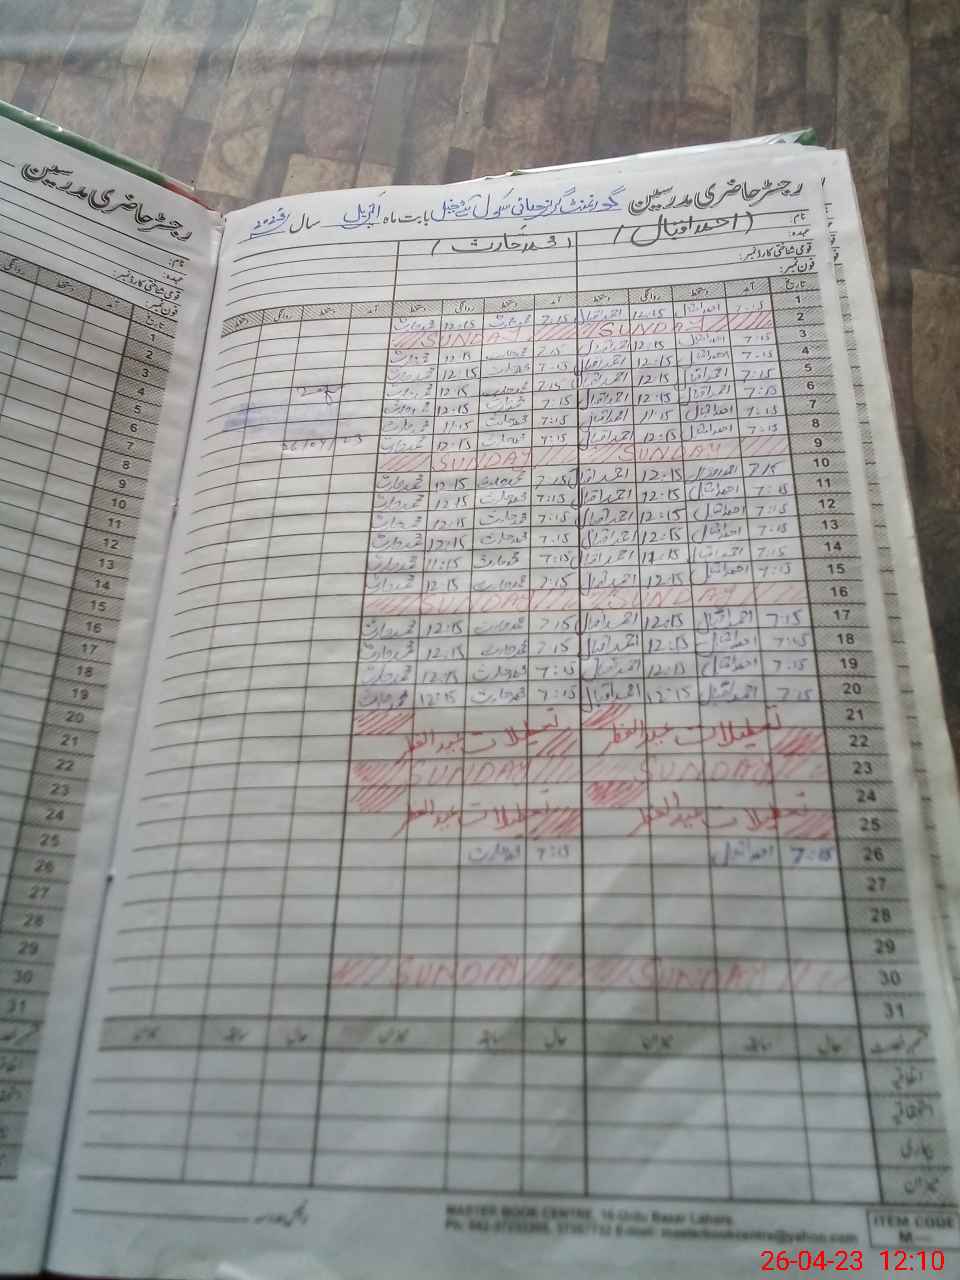 رجسٹر حاضری مدرسین
رجسٹر حاضری مدرسین گورنمنٹ گرلز ہائی سکول بابت ماہ اپریل سال
نام: (احمد اقبال) (محمد حارث)
عہدہ:
قومی شناختی کارڈ نمبر:
فون نمبر:
تاریخ آمد دستخط روانگی دستخط آمد دستخط روانگی دستخط آمد دستخط روانگی دستخط
1 7:15 احمد اقبال 12:15 احمد اقبال 7:15 محمد حارث 12:15 محمد حارث
2 SUNDAY SUNDAY
3 7:15 احمد اقبال 12:15 احمد اقبال 7:15 محمد حارث 12:15 محمد حارث
4 7:15 احمد اقبال 12:15 احمد اقبال 7:15 محمد حارث 12:15 محمد حارث
5 7:15 احمد اقبال 12:15 احمد اقبال 7:15 محمد حارث 12:15 محمد حارث
6 7:15 احمد اقبال 12:15 احمد اقبال 7:15 محمد حارث 12:15 محمد حارث
7 7:15 احمد اقبال 11:15 احمد اقبال 7:15 محمد حارث 11:15 محمد حارث
8 7:15 احمد اقبال 12:15 احمد اقبال 7:15 محمد حارث 12:15 محمد حارث
9 SUNDAY SUNDAY
10 7:15 احمد اقبال 12:15 احمد اقبال 7:15 محمد حارث 12:15 محمد حارث
11 7:15 احمد اقبال 12:15 احمد اقبال 7:15 محمد حارث 12:15 محمد حارث
12 7:15 احمد اقبال 12:15 احمد اقبال 7:15 محمد حارث 12:15 محمد حارث
13 7:15 احمد اقبال 12:15 احمد اقبال 7:15 محمد حارث 12:15 محمد حارث
14 7:15 احمد اقبال 11:15 احمد اقبال 7:15 محمد حارث 11:15 محمد حارث
15 7:15 احمد اقبال 12:15 احمد اقبال 7:15 محمد حارث 12:15 محمد حارث
16 SUNDAY SUNDAY
17 7:15 احمد اقبال 12:15 احمد اقبال 7:15 محمد حارث 12:15 محمد حارث
18 7:15 احمد اقبال 12:15 احمد اقبال 7:15 محمد حارث 12:15 محمد حارث
19 7:15 احمد اقبال 12:15 احمد اقبال 7:15 محمد حارث 12:15 محمد حارث
20 7:15 احمد اقبال 12:15 احمد اقبال 7:15 محمد حارث 12:15 محمد حارث
21
22 تعطیلات عید الفطر تعطیلات عید الفطر
23 SUNDAY SUNDAY
24
25 تعطیلات عید الفطر تعطیلات عید الفطر
26 7:15 احمد اقبال 7:15 محمد حارث
27
28
29
30 SUNDAY SUNDAY
31
حال سابقہ میزان حال سابقہ میزان حال سابقہ میزان
اتفاقیہ
استحقاقیہ
بیماری
میزان
MASTER BOOK CENTRE, 16-Urdu Bazar Lahore.
ITEM CODE
M—
نام:
عہدہ:
قومی شناختی کارڈ نمبر:
فون نمبر:
تاریخ آمد دستخط روانگی
1
2
3
4
5
6
7
8
9
10
11
12
13
14
15
16
17
18
19
20
21
22
23
24
25
26
27
28
29
30
31
26-04-23 12:10